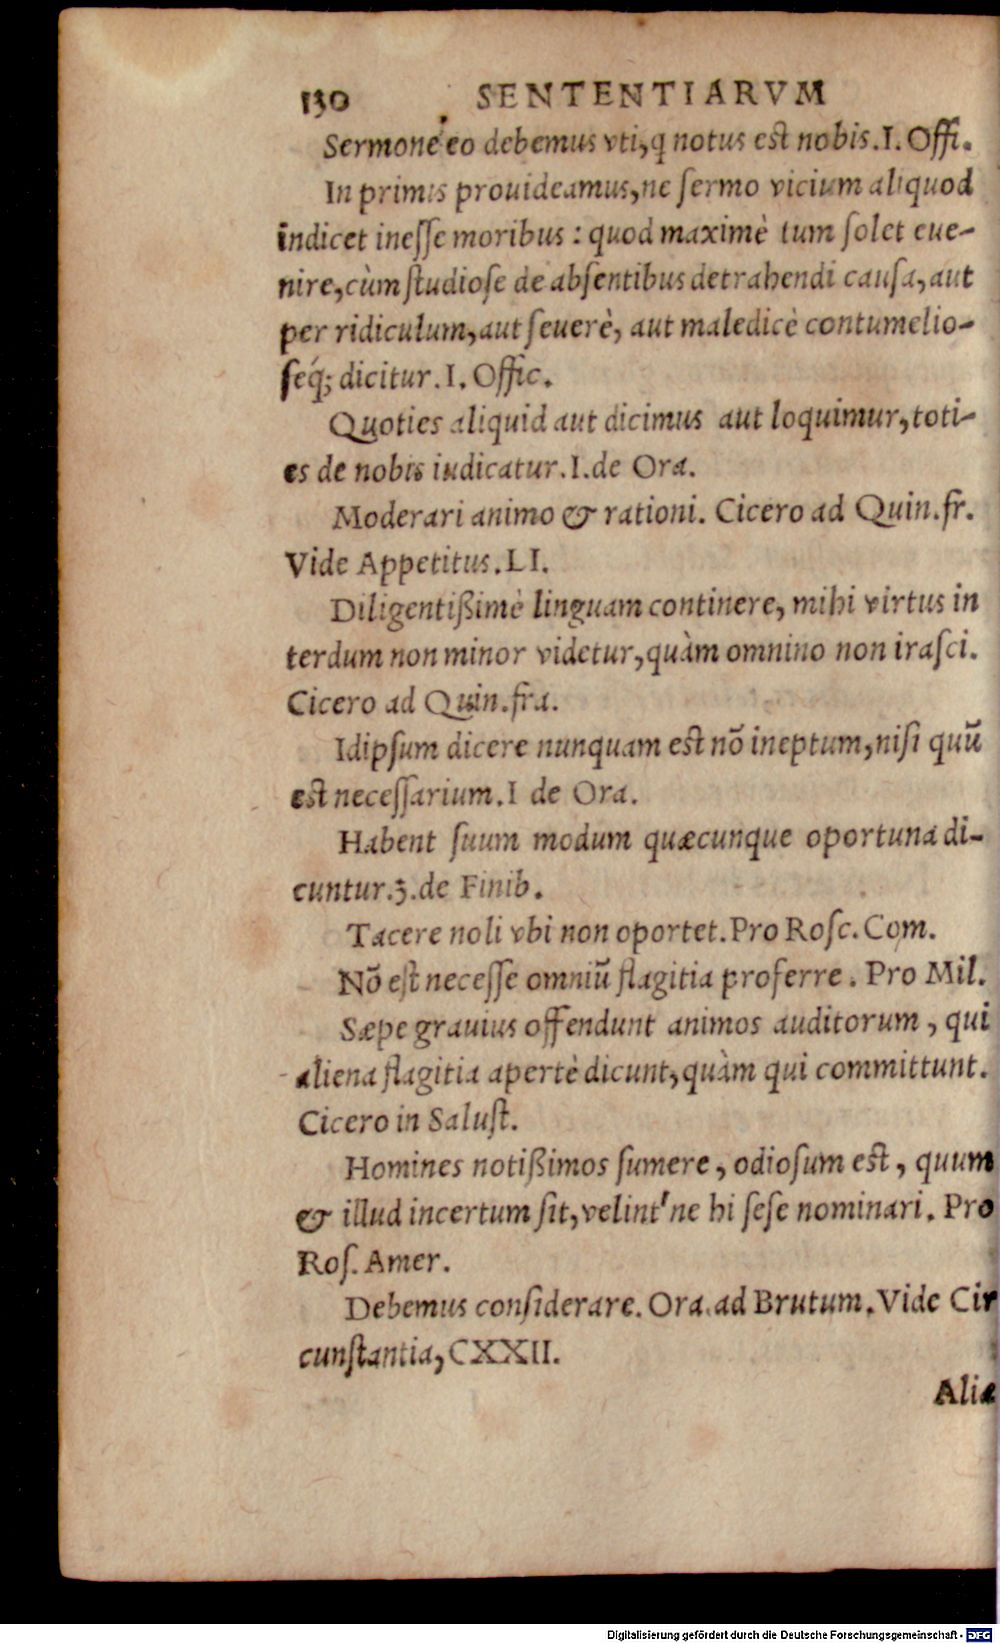 130 SENTENTIARVM
Sermone eo debemus vti, q notus est nobis. I. Offi.
In primis prouideamus, ne sermo vicium aliquod
indicet inesse moribus : quod maximè tum solet eue-
nire, cùm studiose de absentibus detrahendi causa, aut
per ridiculum, aut seuerè, aut maledicè contumelio-
seq́; dicitur. I. Offic.
Quoties aliquid aut dicimus aut loquimur, toti-
es de nobis iudicatur. I. de Ora.
Moderari animo & rationi. Cicero ad Quin. fr.
Vide Appetitus. LI.
Diligentißimè linguam continere, mihi virtus in
terdum non minor videtur, quàm omnino non irasci.
Cicero ad Quin. fra.
Idipsum dicere nunquam est nō ineptum, nisi quū
est necessarium. I de Ora.
Habent suum modum quæcunque oportuna di-
cuntur. 3. de Finib.
Tacere noli vbi non oportet. Pro Rosc. Com.
Nō est necesse omniū flagitia proferre. Pro Mil.
Sæpe grauius offendunt animos auditorum, qui
aliena flagitia apertè dicunt, quàm qui committunt.
Cicero in Salust.
Homines notißimos sumere, odiosum est, quum
& illud incertum sit, velint' ne hi sese nominari. Pro
Ros. Amer.
Debemus considerare. Ora. ad Brutum. Vide Cir
cunstantia, CXXII.
Aliæ
Digitalisierung gefördert durch die Deutsche Forschungsgemeinschaft - DFG